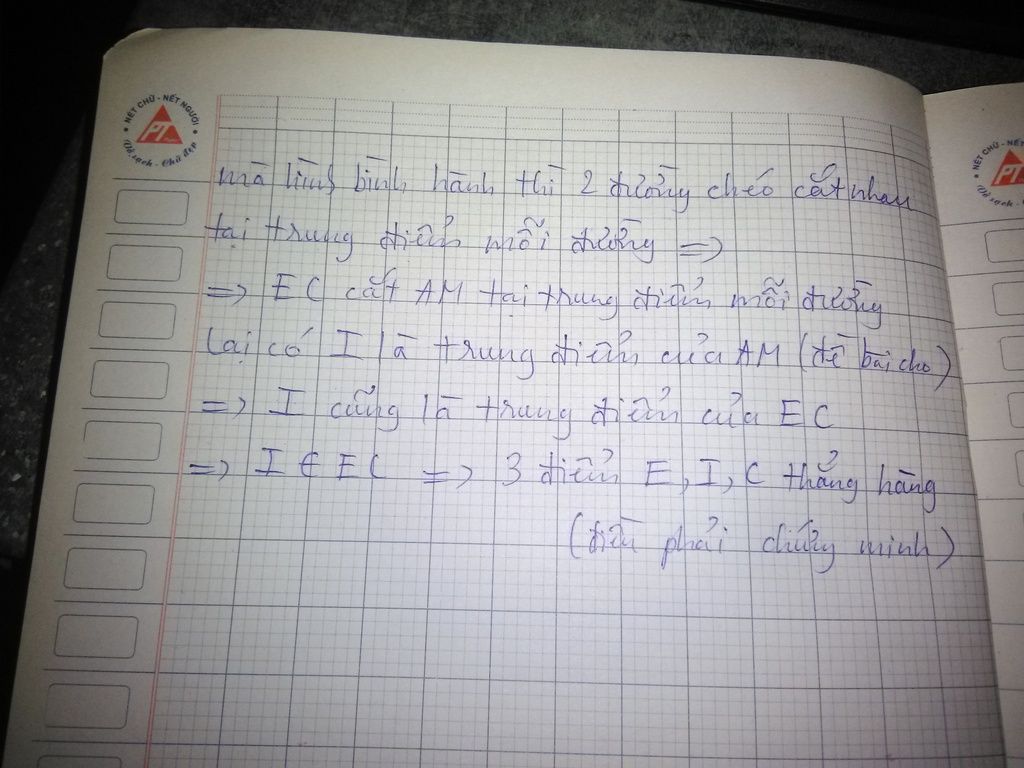 NÉT CHỮ - NẾT NGƯỜI
PT
Vở sạch - Chữ đẹp
mà hình bình hành thì 2 đường chéo cắt nhau
tại trung điểm mỗi đường =>
=> EC cắt AM tại trung điểm mỗi đường
lại có I là trung điểm của AM (đề bài cho)
=> I cũng là trung điểm của EC
=> I ∈ EC => 3 điểm E, I, C thẳng hàng
(điều phải chứng minh)
NÉT CHỮ - NẾT